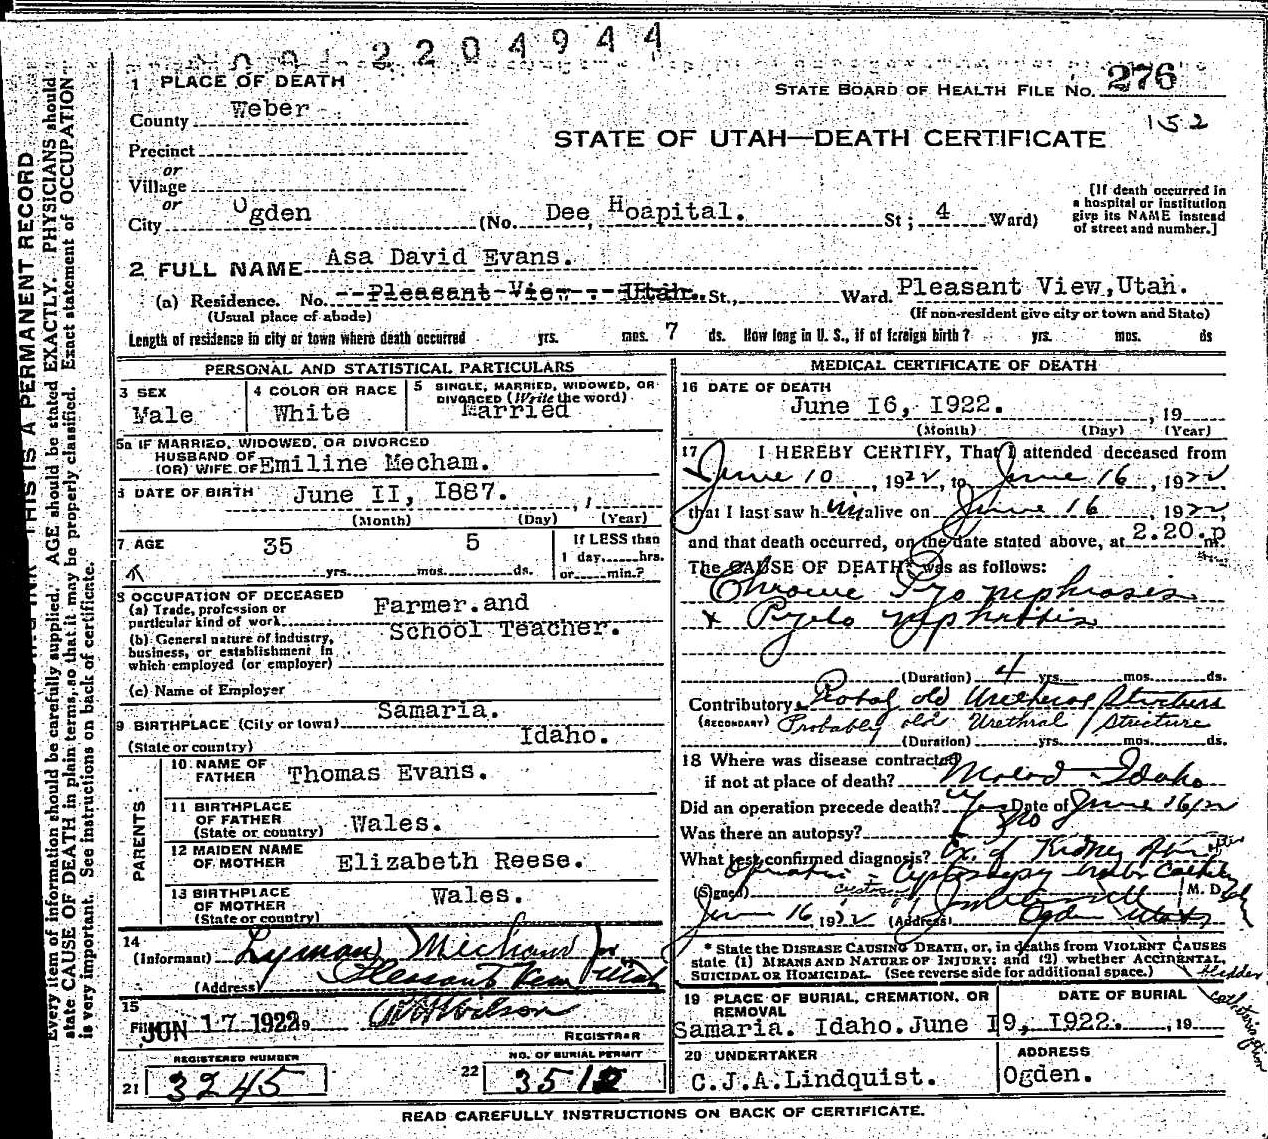 2204944
1 PLACE OF DEATH
STATE BOARD OF HEALTH FILE NO. 276
County Weber
152
STATE OF UTAH—DEATH CERTIFICATE
Precinct
or
Village
or
City Ogden (No. Dee Hoapital. St; 4 Ward)
[If death occurred in
a hospital or institution
give its NAME instead
of street and number.]
2 FULL NAME Asa David Evans.
(a) Residence. No. Pleasant View, Utah. St., Ward. Pleasant View,Utah.
(Usual place of abode) (If non-resident give city or town and State)
Length of residence in city or town where death occurred yrs. mos. 7 ds. How long in U. S., if of foreign birth? yrs. mos. ds
PERSONAL AND STATISTICAL PARTICULARS
3 SEX
Male
4 COLOR OR RACE
White
5 SINGLE, MARRIED, WIDOWED, OR
DIVORCED (Write the word)
Married
5a IF MARRIED, WIDOWED, OR DIVORCED
HUSBAND OF
(OR) WIFE OF Emiline Mecham.
6 DATE OF BIRTH June II, I887.
(Month) (Day) (Year)
7 AGE 35 5
yrs. mos. ds.
If LESS than
1 day,......hrs.
or......min.?
8 OCCUPATION OF DECEASED
(a) Trade, profession or
particular kind of work Farmer.and
School Teacher.
(b) General nature of industry,
business, or establishment in
which employed (or employer)
(c) Name of Employer
9 BIRTHPLACE (City or town) Samaria.
(State or country) Idaho.
PARENTS
10 NAME OF
FATHER Thomas Evans.
11 BIRTHPLACE
OF FATHER
(State or country) Wales.
12 MAIDEN NAME
OF MOTHER Elizabeth Reese.
13 BIRTHPLACE
OF MOTHER
(State or country) Wales.
14
(Informant) Lyman Mecham Jr
(Address) Pleasant View Utah
15
Filed JUN 17 1922 19 Wilson
REGISTRAR
REGISTERED NUMBER
21 3245
NO. OF BURIAL PERMIT
22 3512
MEDICAL CERTIFICATE OF DEATH
16 DATE OF DEATH
June I6, I922. , 19
(Month) (Day) (Year)
17 I HEREBY CERTIFY, That I attended deceased from
June 10 , 1922, to June 16 , 1922
that I last saw him alive on June 16 , 1922,
and that death occurred, on the date stated above, at 2.20.p m.
The CAUSE OF DEATH* was as follows:
Chronic Pyo nephrosis
& Pyelo nephritis
(Duration) 4 yrs. mos. ds.
Contributory Probably old Urethral Strictures
(SECONDARY) Probably old Urethral Structure
(Duration) yrs. mos. ds.
18 Where was disease contracted
if not at place of death? Malad Idaho
Did an operation precede death? Yes Date of June 16/22
Was there an autopsy? No
What test confirmed diagnosis? Ex. of Kidney after
Operation - Cystoscopy
(Signed) M. D.
June 16, 1922 (Address) Ogden Utah
* State the DISEASE CAUSING DEATH, or, in deaths from VIOLENT CAUSES
state (1) MEANS AND NATURE OF INJURY; and (2) whether ACCIDENTAL,
SUICIDAL OR HOMICIDAL. (See reverse side for additional space.)
bladder
catheterization
19 PLACE OF BURIAL, CREMATION, OR
REMOVAL
DATE OF BURIAL
Samaria. Idaho.June I9, I922. , 19
20 UNDERTAKER
C.J.A.Lindquist.
ADDRESS
Ogden.
READ CAREFULLY INSTRUCTIONS ON BACK OF CERTIFICATE.
THIS IS A PERMANENT RECORD
Every item of information should be carefully supplied. AGE should be stated EXACTLY. PHYSICIANS should
state CAUSE OF DEATH in plain terms, so that it may be properly classified. Exact statement of OCCUPATION
is very important. See instructions on back of certificate.